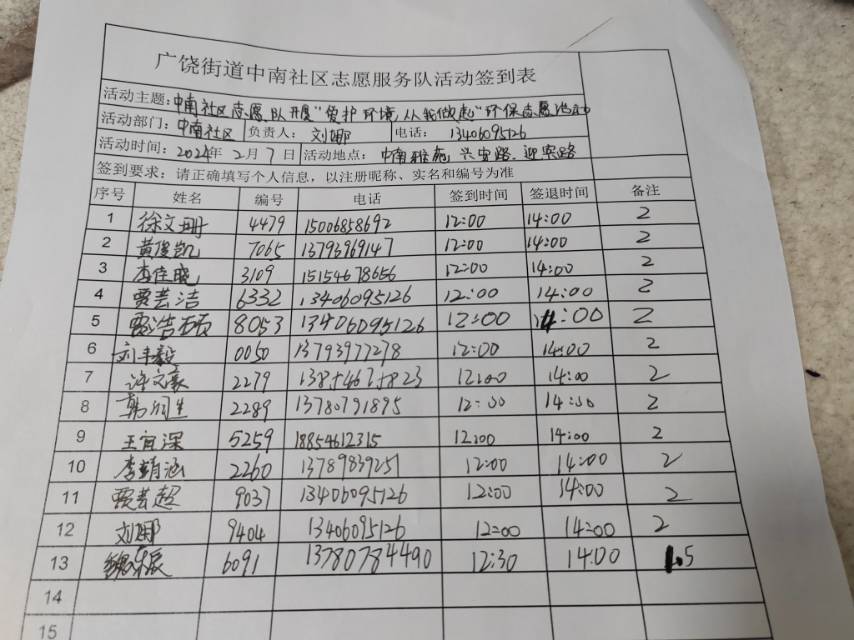 广饶街道中南社区志愿服务队活动签到表
活动主题：中南社区志愿队开展"爱护环境，从我做起"环保志愿活动
活动部门：中南社区 负责人：刘娜 电话：13406095126
活动时间：2024年2月7日 活动地点：中南雅苑，兴安路，迎宾路
签到要求：请正确填写个人信息，以注册昵称、实名和编号为准
序号 姓名 编号 电话 签到时间 签退时间 备注
1 徐文珊 4479 15006858692 12:00 14:00 2
2 黄俊凯 7065 13793969147 12:00 14:00 2
3 李佳晓 3109 15154678656 12:00 14:00 2
4 贾芸洁 6332 13406095126 12:00 14:00 2
5 贾浩硕 8053 13406095126 12:00 14:00 2
6 刘丰毅 0050 13793977278 12:00 14:00 2
7 许文豪 2279 13854675823 12:00 14:00 2
8 韩润生 2289 13780791895 12:00 14:00 2
9 王宜深 5259 18854612315 12:00 14:00 2
10 李靖涵 2260 13789839251 12:00 14:00 2
11 贾芸超 9037 13406095126 12:00 14:00 2
12 刘娜 9404 13406095126 12:00 14:00 2
13 魏东辰 6091 13780784490 12:30 14:00 1.5
14
15